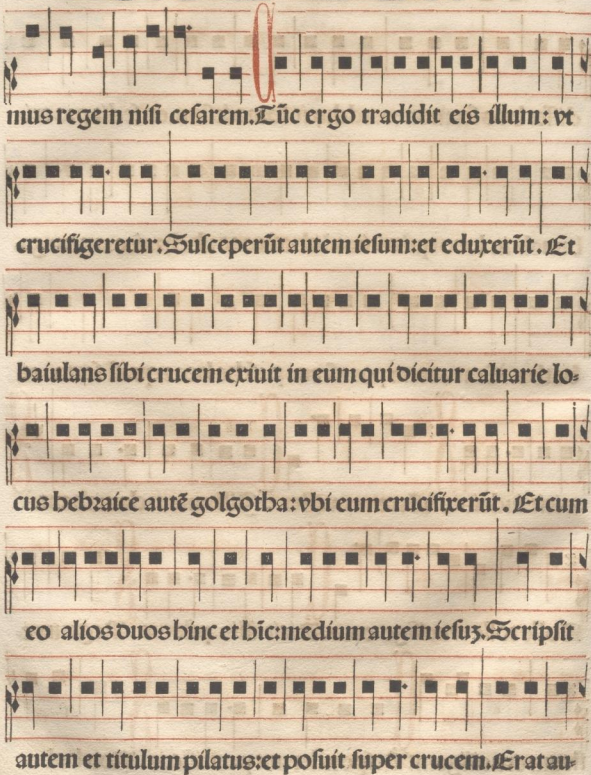 mus regem nisi cesarem. Tūc ergo tradidit eis illum: vt
crucifigeretur. Susceperūt autem iesum: et eduxerūt. Et
baiulans sibi crucem exiuit in eum qui dicitur caluarie lo-
cus hebraice autē golgotha: vbi eum crucifixerūt. Et cum
eo alios duos hinc et hīc: medium autem iesuʒ. Scripsit
autem et titulum pilatus: et posuit super crucem. Erat au-